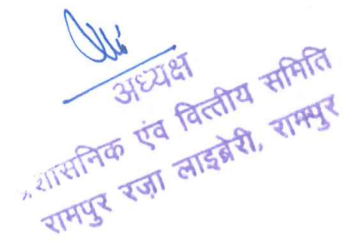 अध्यक्ष
प्रशासनिक एंव वित्तीय समिति
रामपुर रज़ा लाइब्रेरी, रामपुर